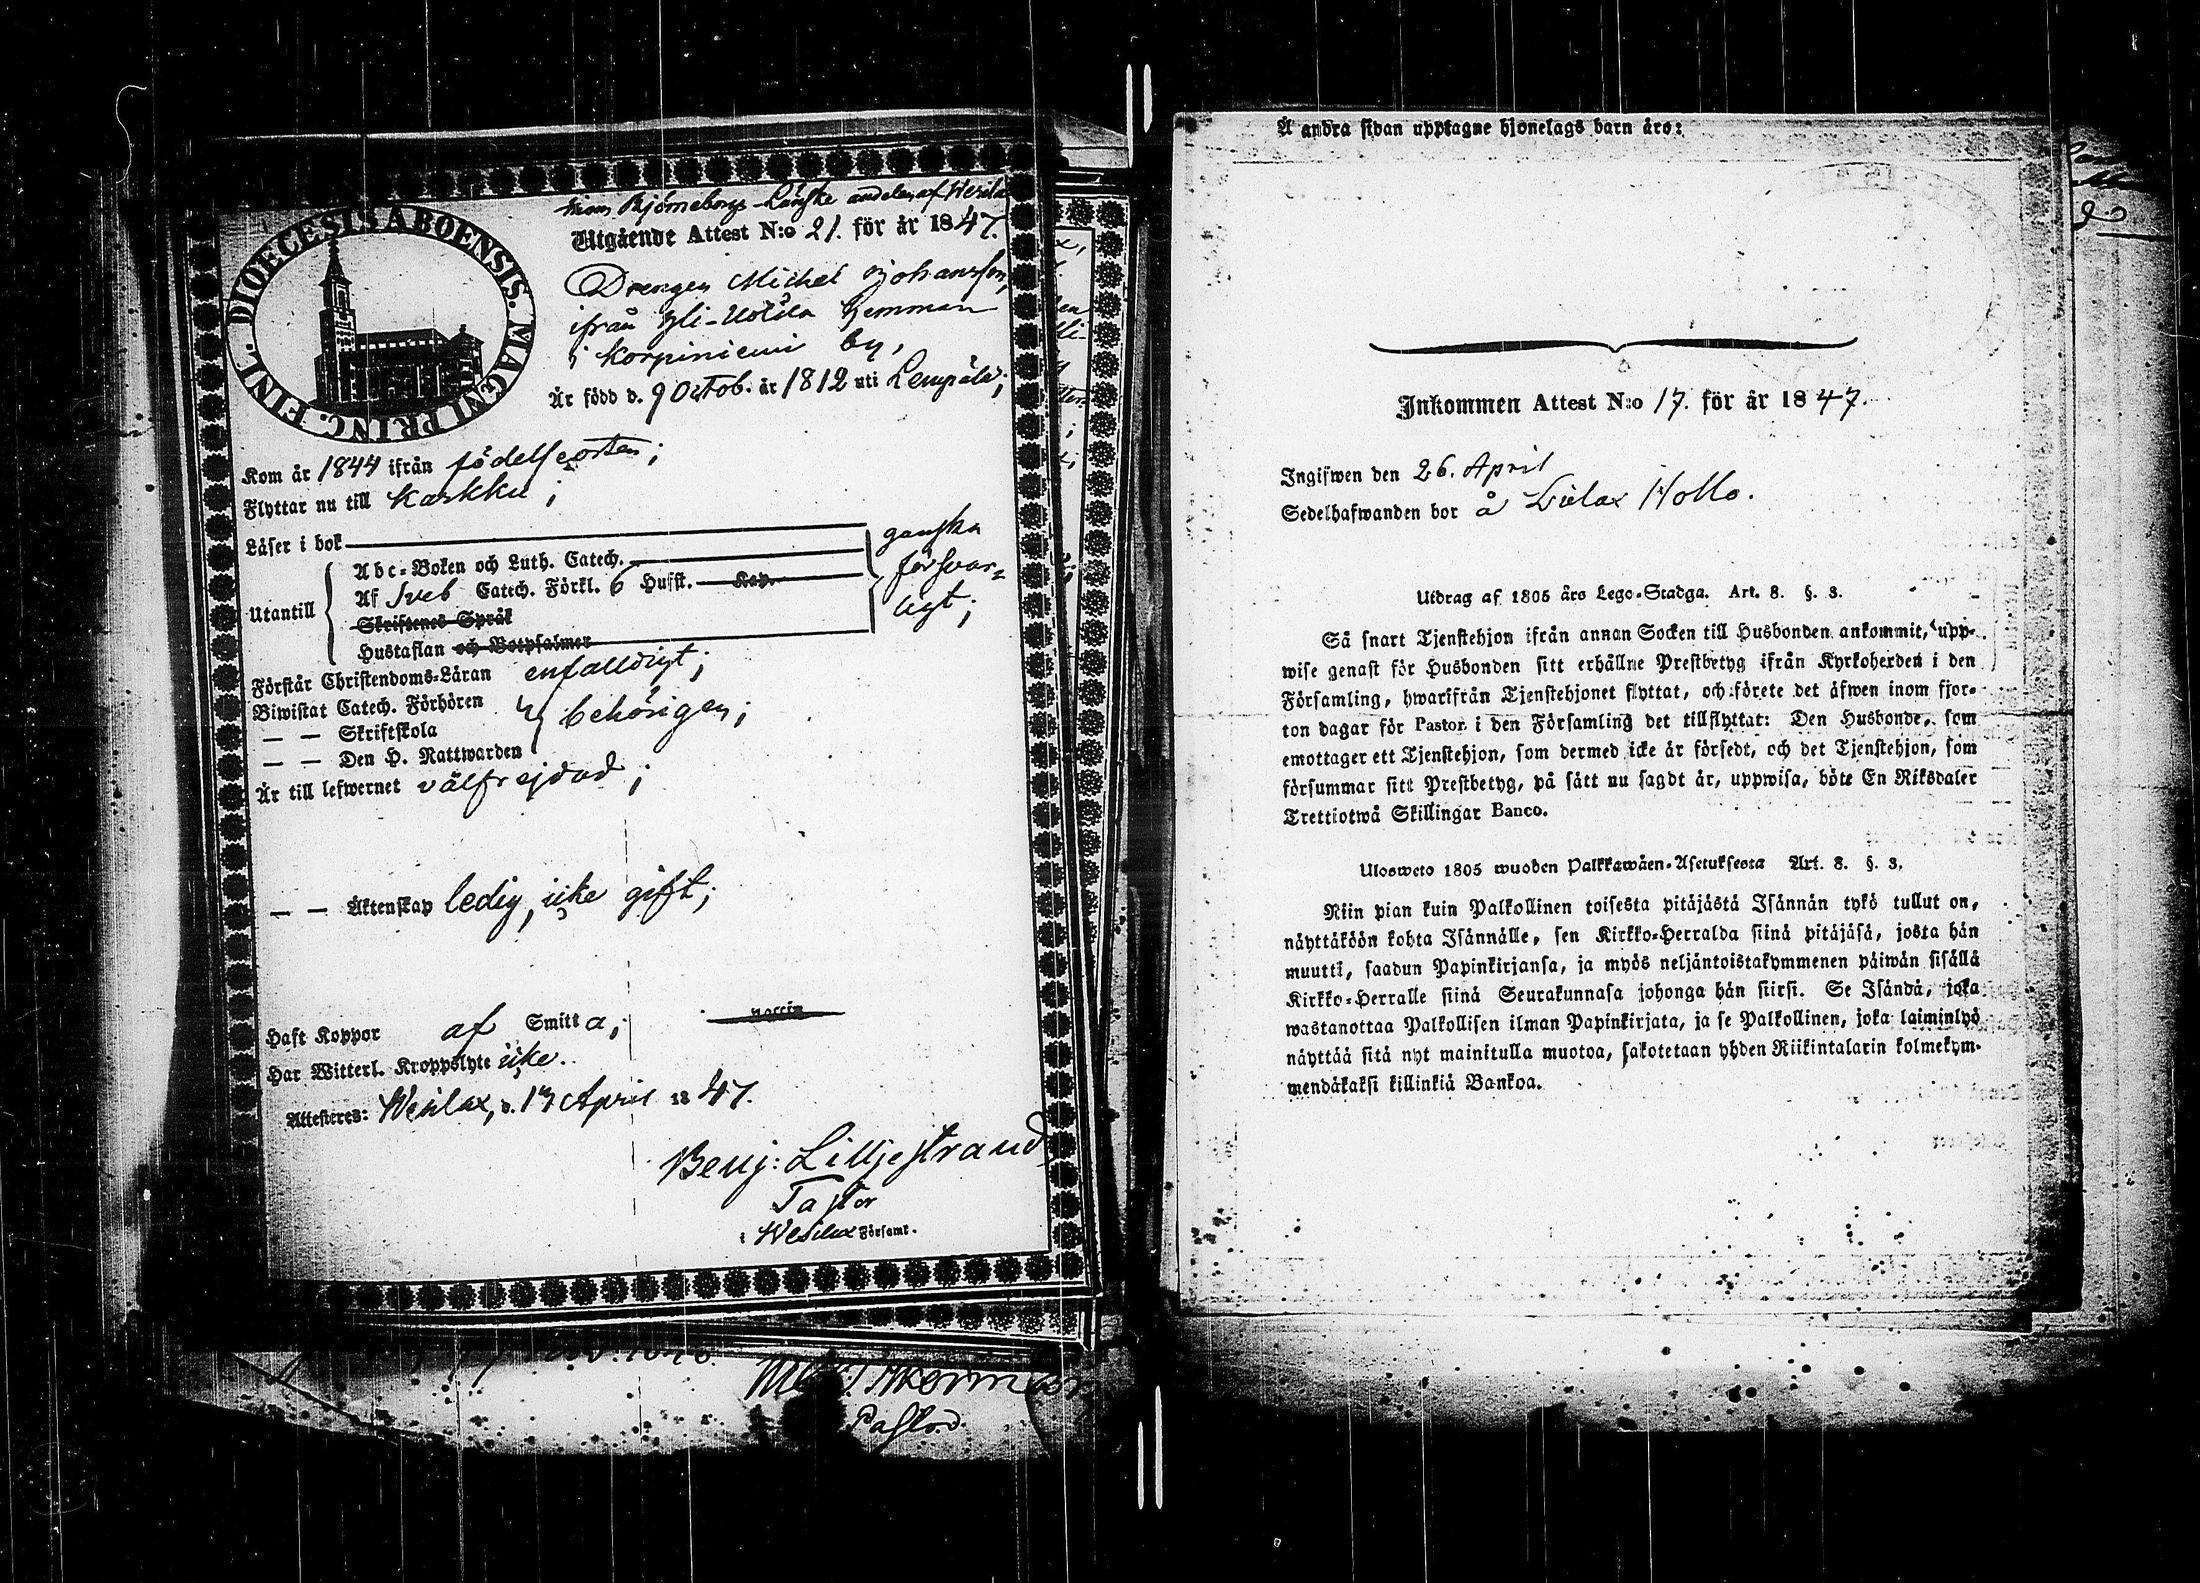 DIOECESIS ABOENSIS. MAGNI PRINC. FINL.
inom Björneborgs Länske andelen af Wesila
Utgående Attest N:o 21. för år 1847.
Drengen Michel Johansson,
ifrån Yli- Hemman
i Korpiniemi by,
Är född d. 9 Octob. år 1812 uti Lempälä;
Kom år 1844 ifrån födelseorten;
Flyttar nu till Karkku;
Läser i bok
Utantill
Abc-Boken och Luth. Catech.
Af Sveb Catech. Förkl. 6 Hufst. Kap.
Skriftenes Språk
Hustaflan och Botpsalmer
ganska
försvar=
ligt;
Förstår Christendoms-Läran enfalldigt;
Biwistat Catech. Förhören
— — Skriftskola
— — Den H. Nattwarden
behörigen;
Är till lefwernet välfrejdad;
— — Äktenskap ledig, icke gift;
Haft Koppor af Smitta;
Har Witterl. Kroppslyte icke.
Attesteres: Wesilax, d. 17 April 1847.
Benj: Lilljestrand
Pastor
i Wesilax Församl.
Pastor
Å andra sidan upptagne hjonelags barn äro:
Inkommen Attest N:o 17. för år 1847.
Ingifwen den 26. April
Sedelhafwanden bor å Hollo.
Utdrag af 1805 års Lego-Stadga. Art. 8. §. 3.
Så snart Tjenstehjon ifrån annan Socken till Husbonden ankommit, upp-
wise genast för Husbonden sitt erhållne Prestbetyg ifrån Kyrkoherden i den
Församling, hwarifrån Tjenstehjonet flyttat, och förete det äfwen inom fjor-
ton dagar för Pastor i den Församling det tillflyttat: Den Husbonde, som
emottager ett Tjenstehjon, som dermed icke är försedt, och det Tjenstehjon, som
försummar sitt Prestbetyg, på sätt nu sagdt är, uppwisa, böte En Riksdaler
Trettiotwå Skillingar Banco.
Ulosweto 1805 wuoden Palkkawäen-Asetuksesta Art. 8. §. 3.
Niin pian kuin Palkollinen toisesta pitäjästä Isännän tykö tullut on,
näyttäköön kohta Isännälle, sen Kirkko-Herralda siinä pitäjäsä, josta hän
muutti, saadun Papinkirjansa, ja myös neljäntoistakymmenen päiwän sisällä
Kirkko-Herralle siinä Seurakunnasa johonga hän siirsi. Se Isändä, joka
wastanottaa Palkollisen ilman Papinkirjata, ja se Palkollinen, joka laiminlyö
näyttää sitä nyt mainitulla muotoa, sakotetaan yhden Riikintalarin kolmekym-
mendäkaksi killinkiä Bankoa.